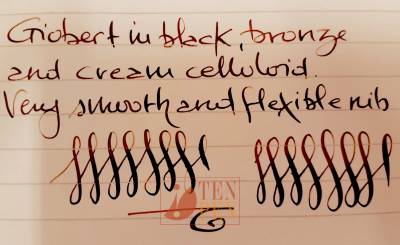 Giobert in black, bronze
and cream celluloid.
Very smooth and flexible nib
TEN
PEN
G